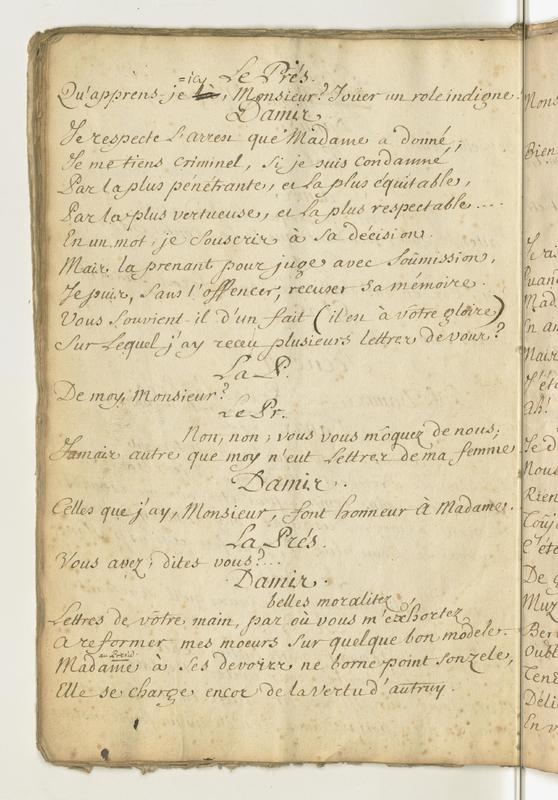 Le Prés.
=icy
Qu'apprens-je là, Monsieur? Joüer un role indigne.
Damis
Je respecte l'arrest que Madame a donné;
Je me tiens criminel, si je suis condamné
Par la plus pénétrante, et la plus équitable,
Par la plus vertueuse, et la plus respectable....
En un mot, je souscris à sa décision.
Mais, la prenant pour juge avec soûmission,
Je puis, sans l'offencer, recuser sa mémoire.
Vous souvient-il d'un fait (il est à vôtre gloire)
Sur Lequel j'ay receu plusieurs lettres de vous?
La P.
De moy, Monsieur?
Le Pr.
Non, non, vous vous môquez de nous;
Jamais autre que moy n'eut Lettres de ma femme
Damis.
Celles que j'ay, Monsieur, font honneur à Madame.
La Prés.
Vous avez, dites vous?...
Damis.
belles moralitez
Lettres de vôtre main, par où vous m'exhortez
A reformer mes moeurs sur quelque bon modele.
Madame à ses devoirs ne borne point son zele,
Elle se charge encor de la vertu d'autruy.
Mons
Bien